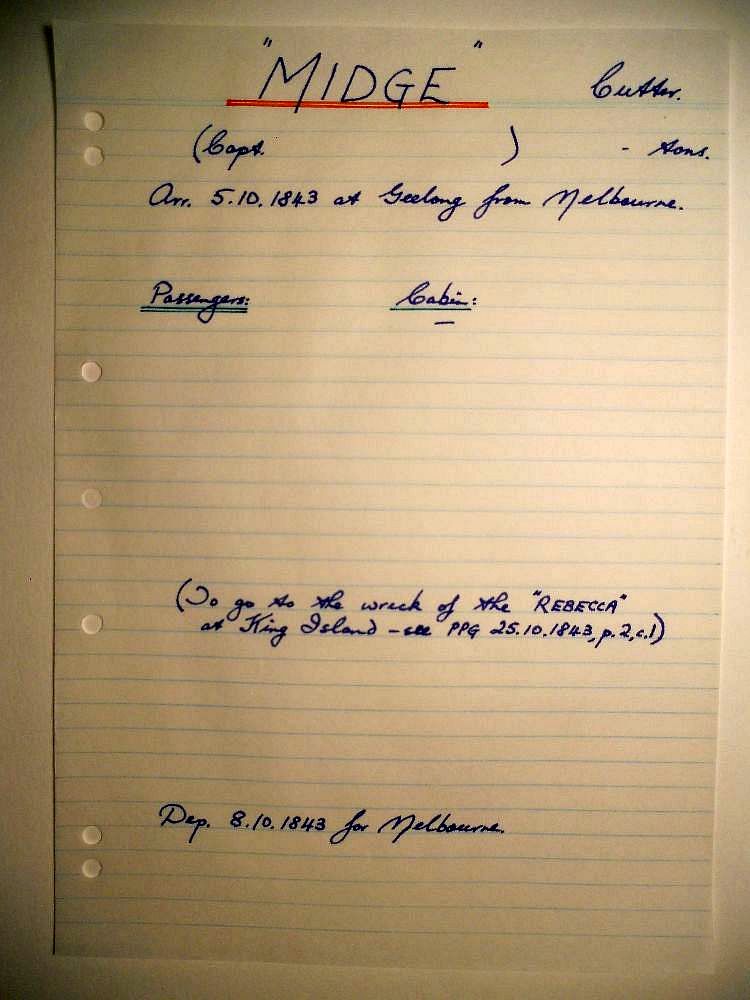 "MIDGE" Cutter.
(Capt. ) - tons.
Arr. 5.10.1843 at Geelong from Melbourne.
Passengers: Cabin:
—
(To go to the wreck of the "REBECCA"
at King Island - see PPG 25.10.1843, p.2, c.1)
Dep. 8.10.1843 for Melbourne.